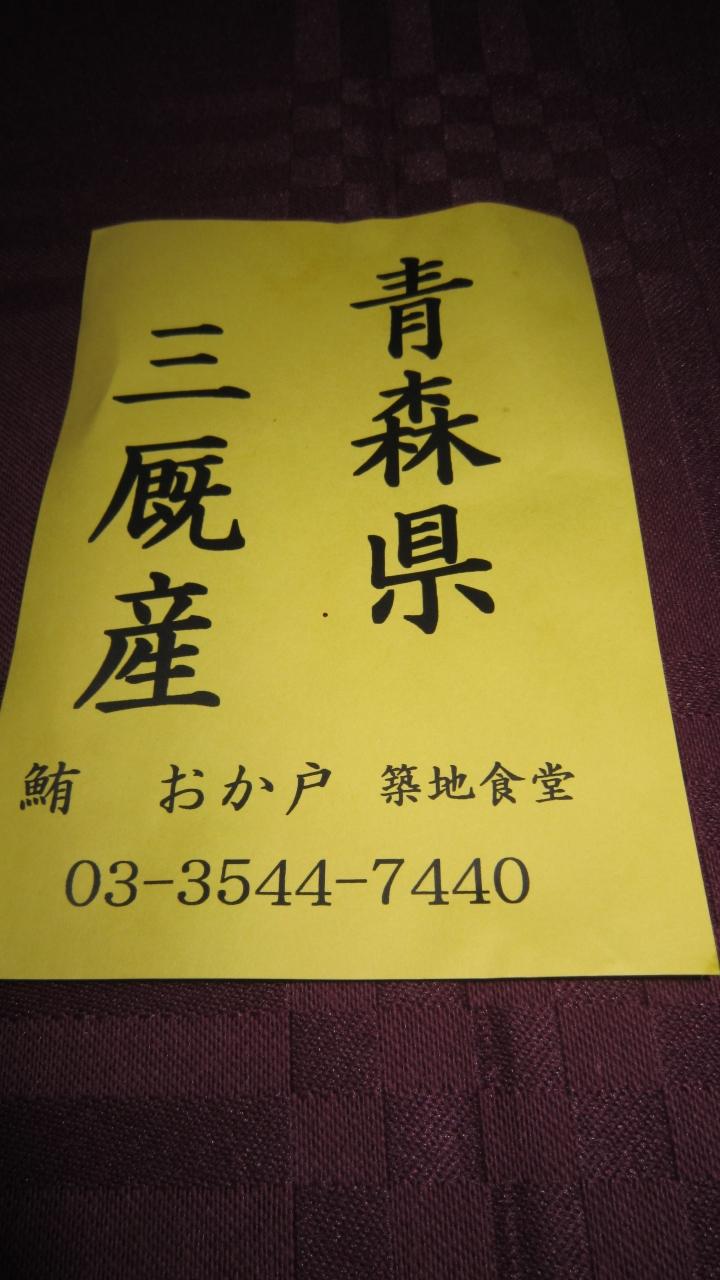 青森県
三厩産
鮪 おか戸 築地食堂
03-3544-7440